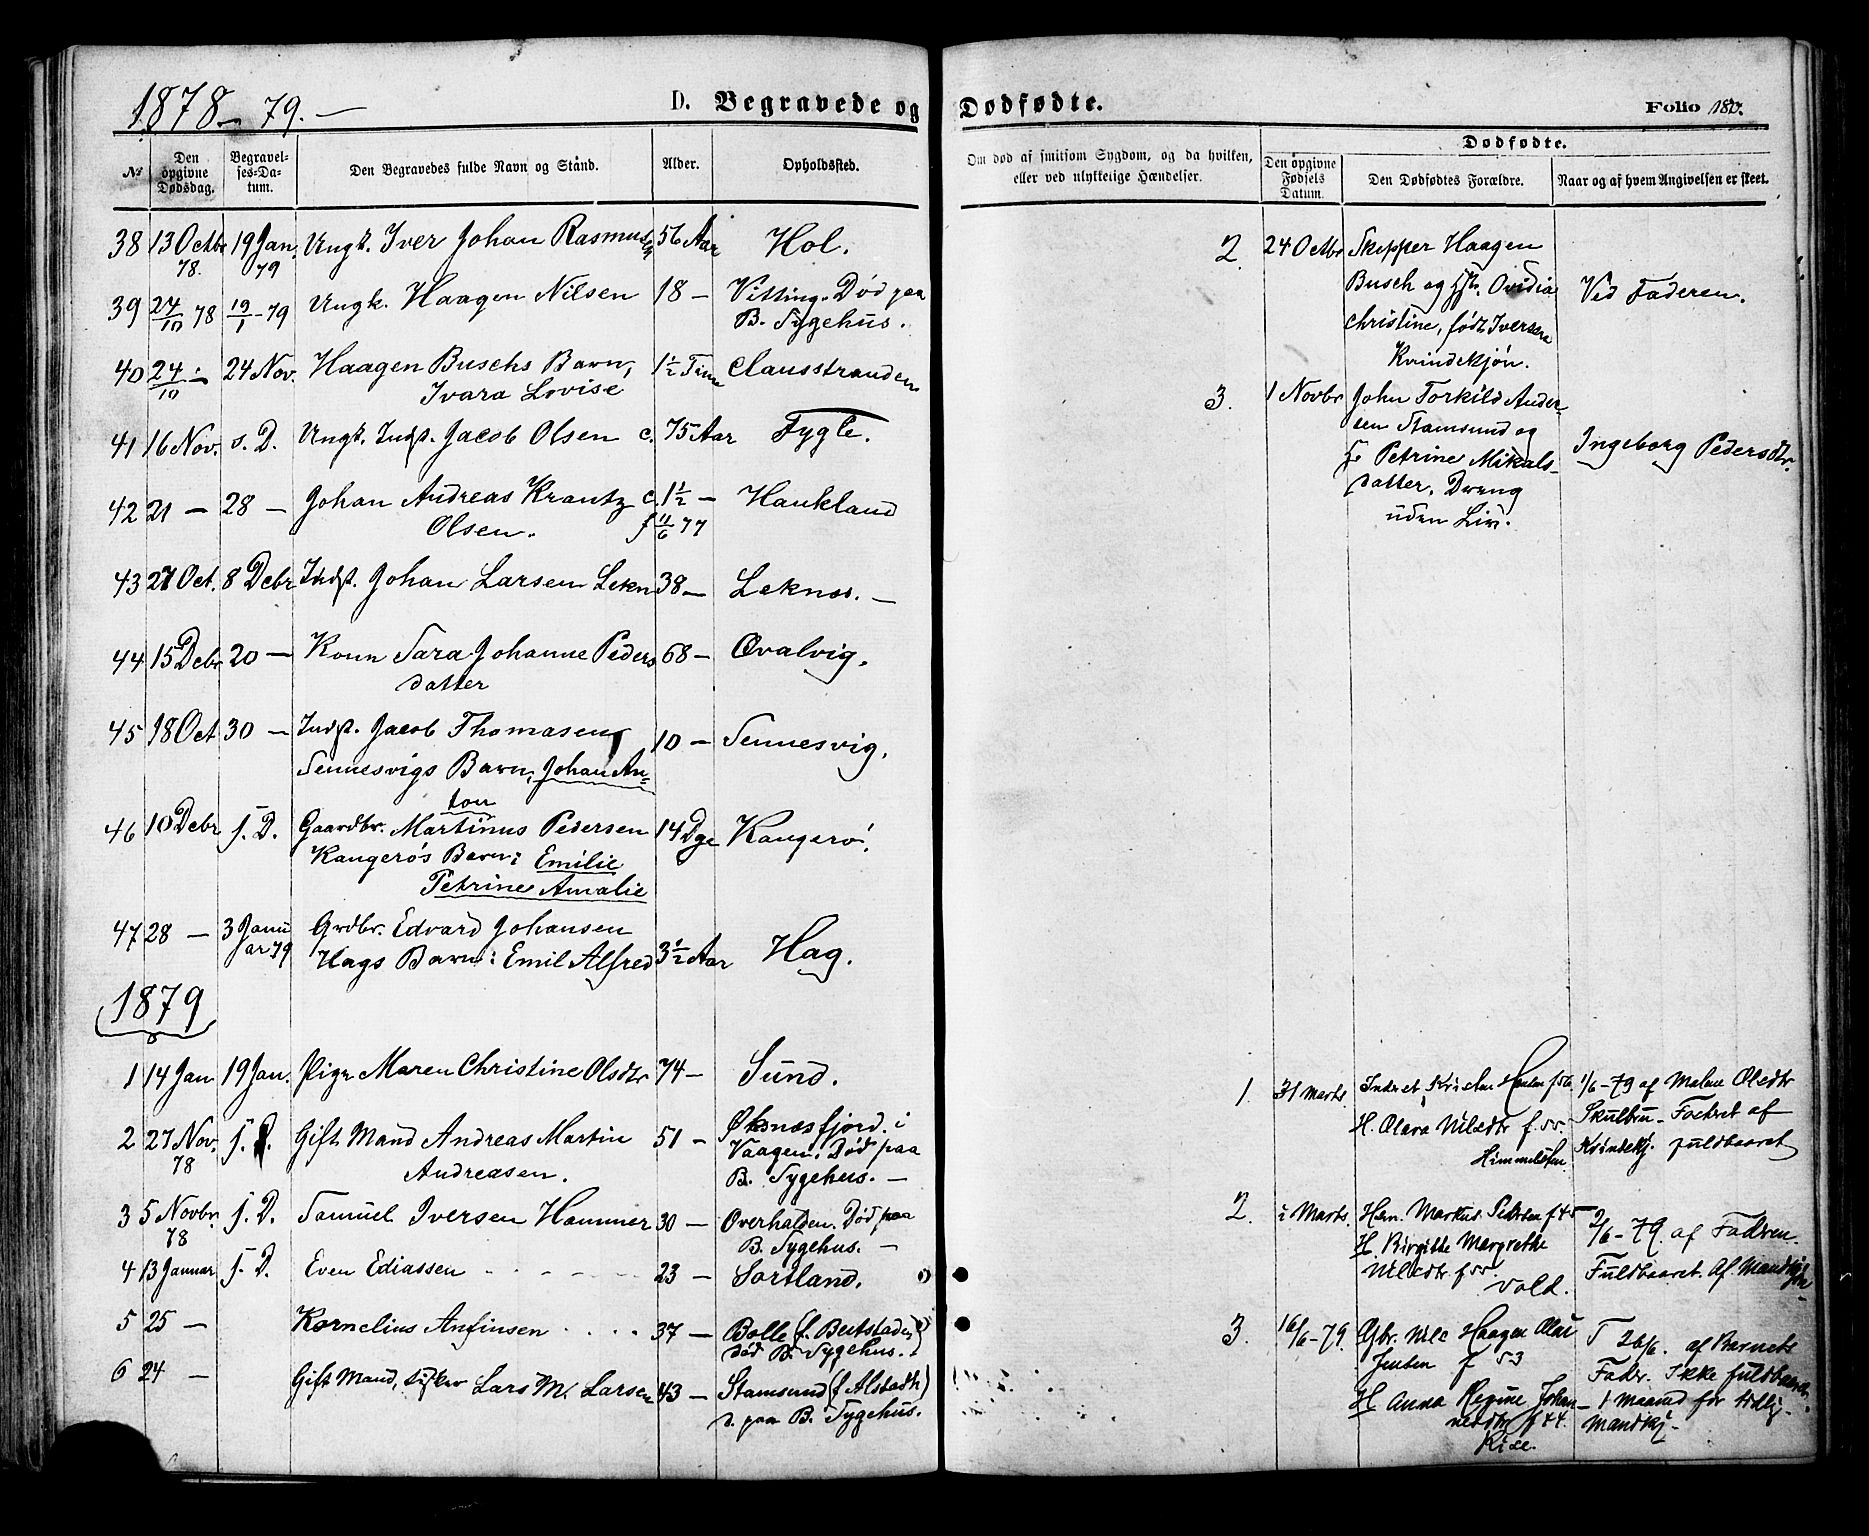 1878-79.-
D. Begravede og Dødfødte.
Folio 180.
№
Den opgivne Dødsdag.
Begravelses-Datum.
Den Begravedes fulde Navn og Stånd.
Alder.
Opholdssted.
Om død af smitsom Sygdom, og da hvilken,
eller ved ulykkelige Hændelser.
Dødfødte.
Den opgivne Fødsels Datum.
Den Dødfødtes Forældre.
Naar og af hvem Angivelsen er skeet.
38 13 Octbr 19 Jan. Ungk. Iver Johan Rasmusen 56 Aar Hol.
78. 79
39 24/10 78 19/1-79 Ungk. Haagen Nilsen 18 - Vitting. Død paa
B. Sygehus.
40 24/10 - 24 Nov. Haagen Buschs Barn, 1½ Time Clausstranden
Ivara Lovise
41 16 Nov. s. D. Ungk. Indst. Jacob Olsen c. 75 Aar Fygle.
42 21 - 28 - Johan Andreas Krantz c. 1½ - Haukland
Olsen. f 11/6 77
43 27 Oct. 8 Debr Indst. Johan Larsen Lekn 38 - Leknes. -
44 15 Debr 20 - Konn Sara Johanne Peders 68 - Qvalvig.
datter
45 18 Oct 30 - Indst. Jacob Thomasen
Sennesvigs Barn, Johan An- 10 - Sennesvig.
ton
46 10 Debr s. D. Gaardbr. Martinus Pedersen 14 Dge Kangerø.
Kangerøs Barn: Emilie
Petrine Amalie
47 28 - 3 Janu Grdbr. Edvard Johansen
ar 79 Hags Barn: Emil Alfred 3½ Aar Hag.
1879
1 14 Jan 19 Jan. Pige Maren Christine Olsdtr 74 - Sund.
2 27 Nov. s. D. Gift Mand Andreas Martin 51 - Øksnæsfjord i
78 Andreasen. Vaagen. Død paa
B. Sygehus. -
3 5 Novbr s. D. Samuel Iversen Hammer 30 - Overhalden. Død paa
78 B. Sygehus. -
4 13 Januar s. D. Even Ediassen 23 - Sortland.
5 25 - Kornelius Anfinsen 37 - Bolle (f. Beitstaden)
død B. Sygehus.
6 24 - Gift Mand, Lars M. Larsen 43 - Stamsund (f Alstadh)
d. paa B. Sygehus.
2. 24 Octbr Skipper Haagen
Busch og Hst. Ovidia Ved Faderen.
Christine, født Iversen
Kvindekjøn.
3. 1 Novbr John Torkild Ander-
sen Stamsund og
H Petrine Mikals- Ingeborg Pedersdtr.
datter. Dreng
uden Liv.
1. 31 Marts f 56 1/6-79 af Malene Olsdtr
H. Olava Nilsdtr f. 55. Skulbru - Fosteret af
Himmelsten Kvindekj. fuldbaaret
2. Marts. Markus Petersen f 45 2/6-79. af Fadren.
H. Birgitte Margrethe
Nilsdtr f 55. Fuldbaaret. Af Mandkjøn
Vold.
3. 16/6-79. Gbr. Nils Haagen Olai 26/6. af Barnets
Jenten f 53 Fader. Ikke fuldbaaren
H Anna Regine Johan- 1 Maaned for tidlig.
nesdtr f 44. Mandkj.
Rise.